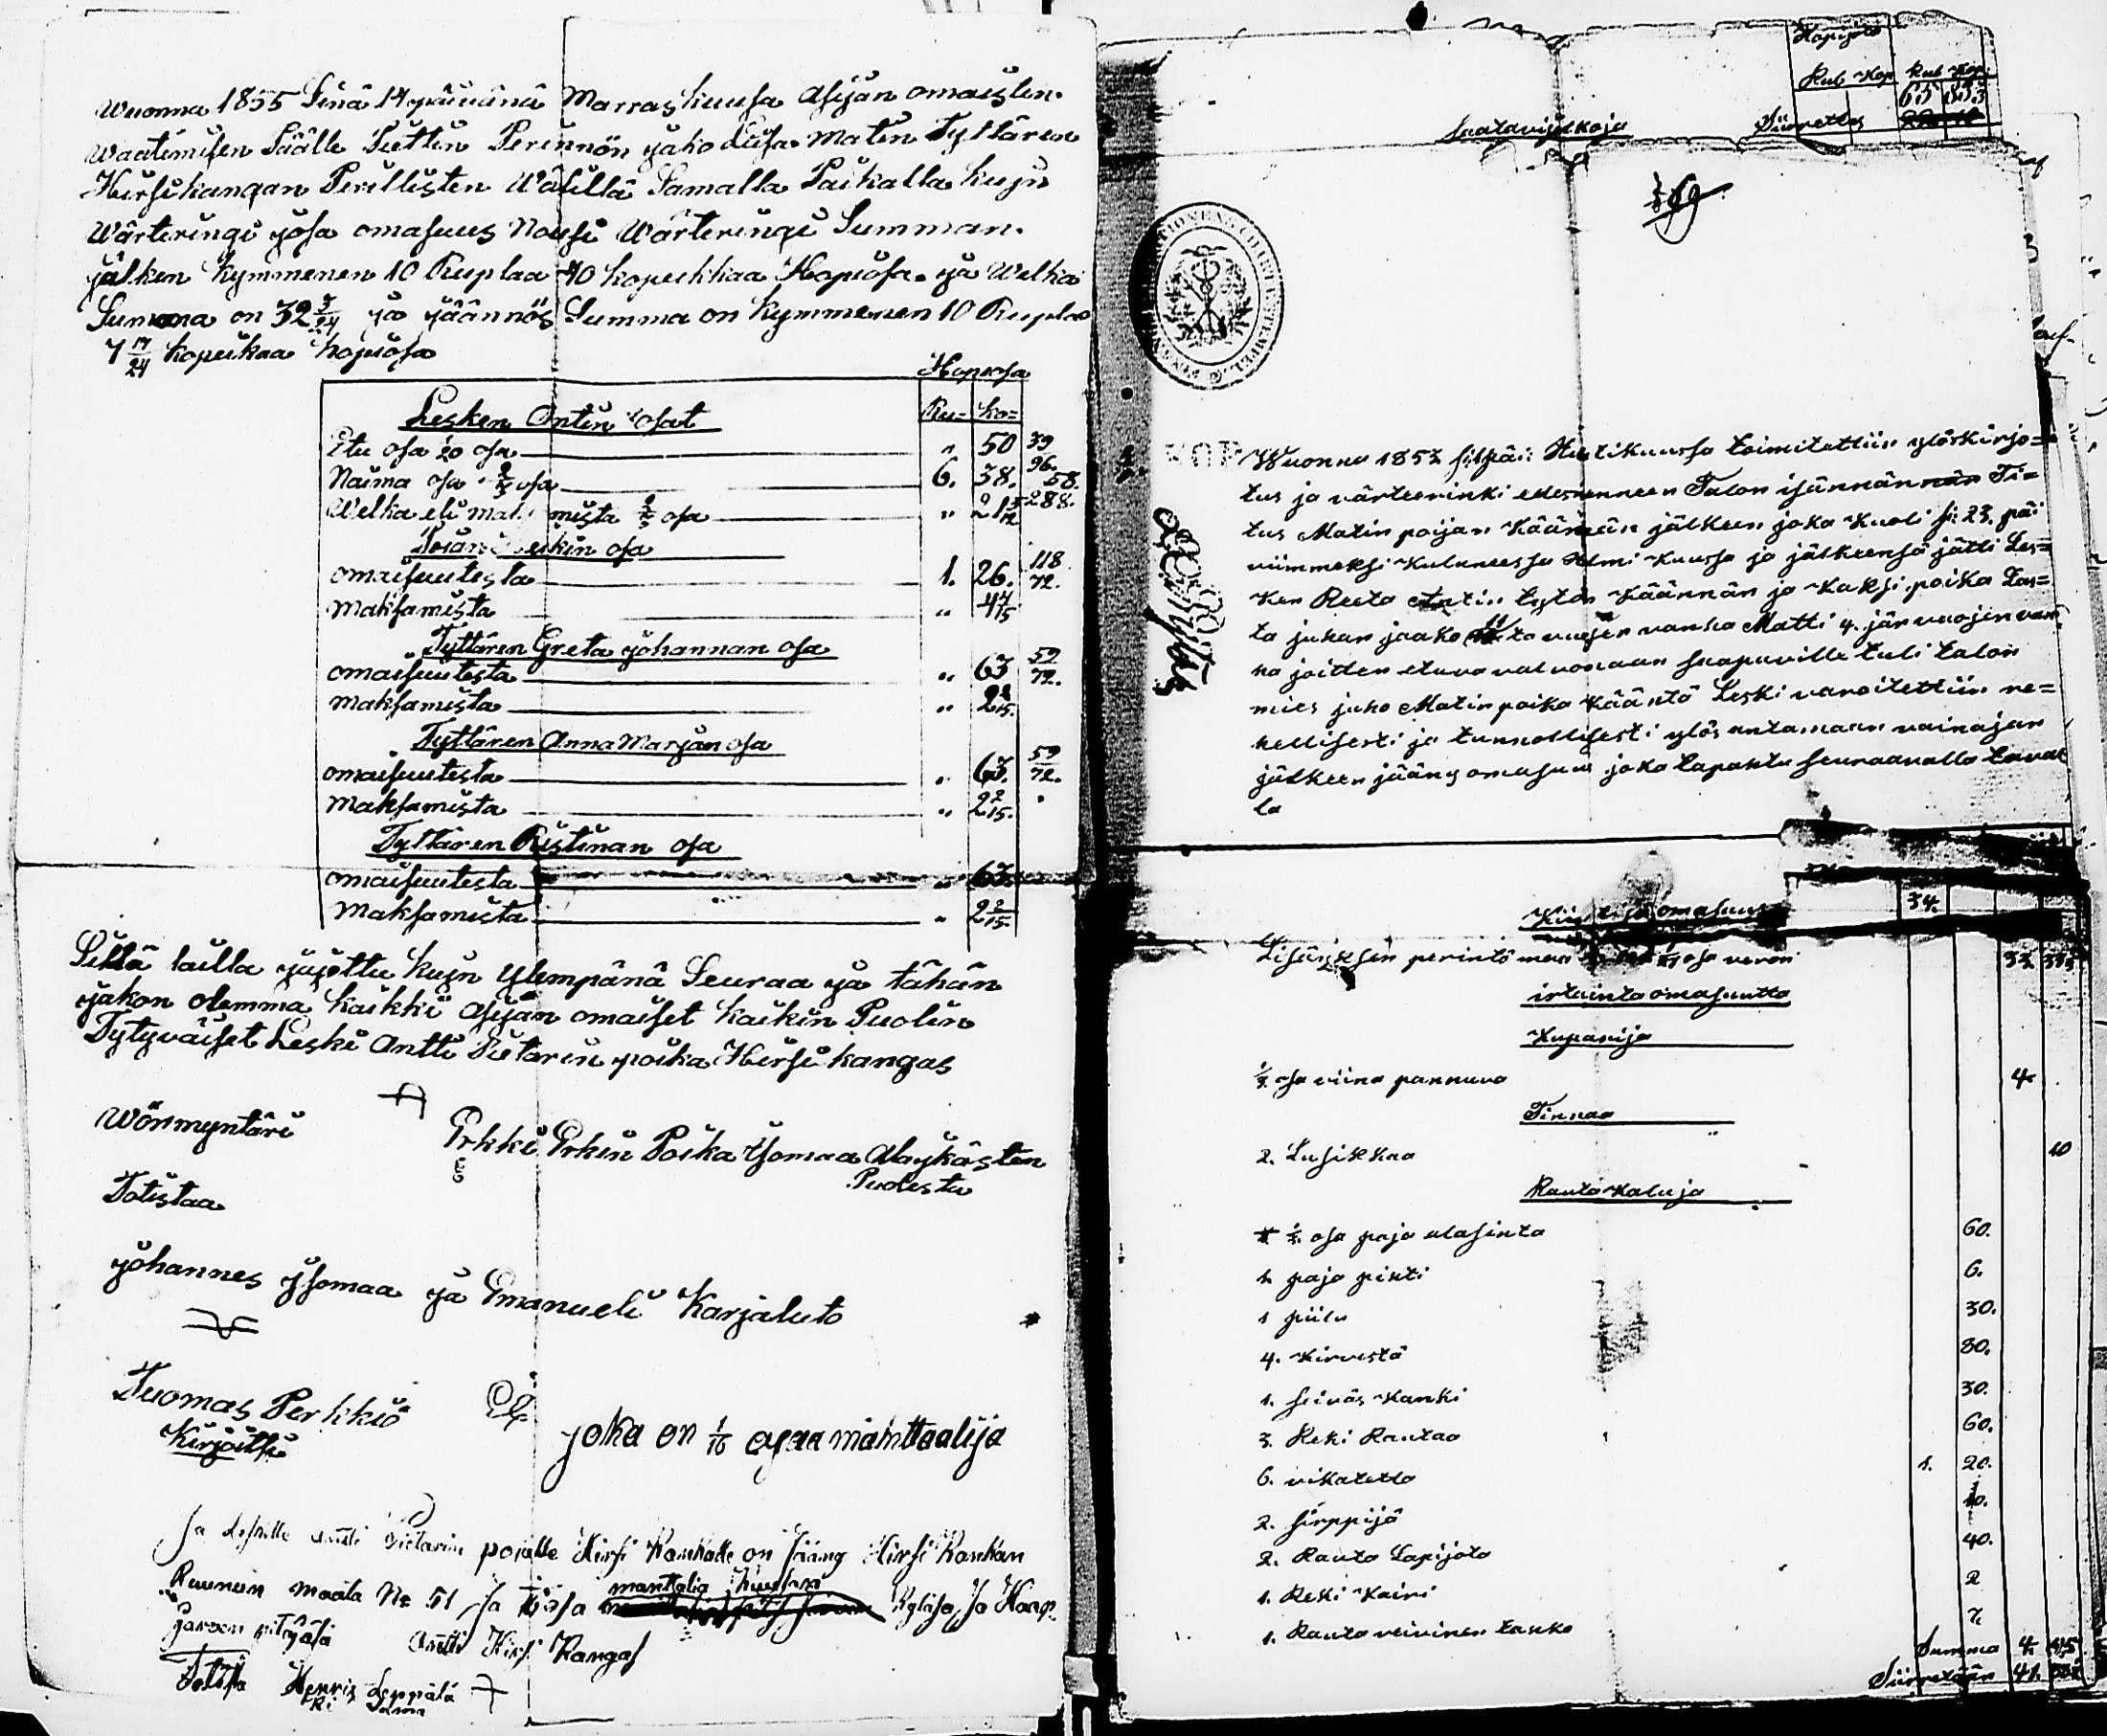 Wuonna 1855 Sinä 14 päiwänä Marraskuusa Asijan omaisten
Waatimisen Päälle Piettin Perinnön jako Liisa Matin Tyttären
Hirsikangan Perillisten Wälillä Samalla Paikalla kujn
Wärteringi josa omasuus Nousi Wärteringi Summan
jälken kymmenen 10 Ruplaa 40 kopeikkaa Hopiosa ja Welka
Summa on 32 3/24 ja jäännös Summa on kymmenen 10 Rupla
7 17/24 kopeikaa hopiosa
Hopiosa
Lesken Antin osat Ru= ko=
Etu osa 20 osa " 50 39
Naima osa osa 6. 38. 96. 58.
Welka eli mista osa " 21 288.
osa
omaisuutesta 1. 26. 118 72.
Maksamista "
Tyttären Greta johannan osa
omaisuutesta " 63 59 72.
maksamista " 2 2/15.
Tyttären Anna Marjan osa
omaisuutesta " 63. 59 72.
Maksamista " 2 2/15.
Tyttären Ristinan osa
omaisuutesta " 63.
Maksamista " 2 2/15.
Sillä lailla jajottu kujn ylempänä Seuraa ja tähän
jakon olemma kaikki Asijan omaiset kaikin Puolin
Tytyväiset Leski Antti Pietarin poika Hirsikangas
Wörmyntäri Erkki Erkin Poika Ysomaa Alaykästen
Puolesta
Totistaa
johannes Ysomaa ja Emanueli Karjaluto
Tuomas Perkkiö
Kirjoitti
joka on 1/16 osaa mánttaalija
Ja Leskille Antti Pietarin pojalle Hirsi Kankalle on Jääny Hirsi Kankan
Ruunun maata No 51 Ja osa manttalia Kylösä Ja Haap
järven pitäjäsä Antti Hirsi Kangas
Totista Henrik Leppälä
Hopijata
Rub Kop Rub Kop.
Saatavijakoja Siirrettos 65
Wuonna 1852 Huhtikuussa toimitettiin ylöskirjo=
tus ja värteerinki edesmenneen Talon isännän Ti=
tus Matin poijan Käännän jälkeen joka Kuoli 23. päi
viimmeksi Kuluneessa Helmi Kuussa ja jälkeensä jätti Les=
ken Reeta Antin tytön Käännän ja Kaksi poika Las=
ta juhan jaako ta vuojen vanha Matti 4. jän vuojen van
ha joitten etuva valvomaan saapuville tuli talon
mies juho Matin poika Kääntä Leski varoitettiin re=
hellisesti ja tunnollisesti ylös antamaan vainajan
jälkeen jääny omasuus joka tapahtu seuraavalla taval
la
omasuus 34.
perintö maa osa veron
irtainta omasuutta
Kuparija
1/2 osa viina pannuva 4
Tinnaa
2. Lusikkaa 10
Rauta Kaluja
osa paja alasinta 60.
1. paja pihti 6.
1 piilu 30.
4. Kirvestä 80.
1. seiväs Kanki 30.
3. Reki Rautaa 60.
6. vikatetta 1. 20.
2. sirppijä 10.
2. Rauta Lapijota 40.
1. Reki Kairi 2
1. Rauta veivinen tanko 7.
Summa 4
Siirretään 41.